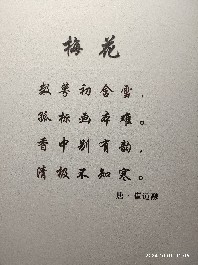 梅花
数萼初含雪，
孤标画本难。
香中别有韵，
清极不知寒。
唐·崔道融